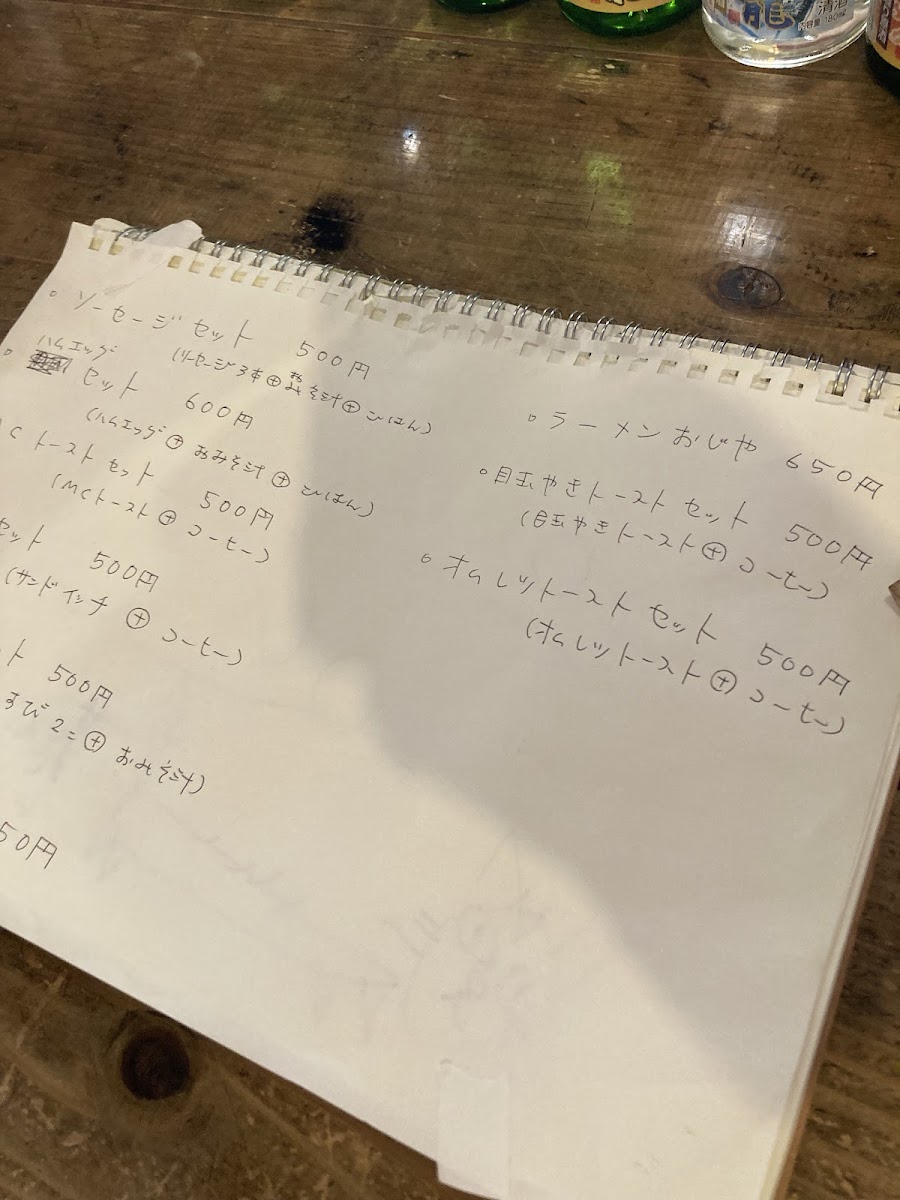 清酒
内容量 180ml
。ソーセージセット 500円
(ソーセージ3本⊕おみそ汁⊕ごはん)
。ハムエッグセット 600円
(ハムエッグ⊕おみそ汁⊕ごはん)
Cトーストセット 500円
(MCトースト⊕コーヒー)
セット 500円
(サンドイッチ⊕コーヒー)
ット 500円
すび2コ⊕おみそ汁)
50円
。ラーメンおじや 650円
。目玉やきトーストセット 500円
(目玉やきトースト⊕コーヒー)
。オムレツトーストセット 500円
(オムレツトースト⊕コーヒー)